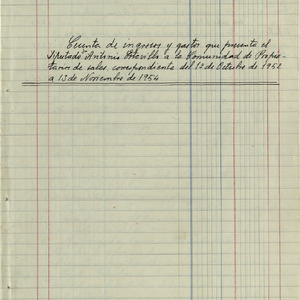 Cuenta de ingresos y gastos que presenta el
Diputado Antonio a la Comunidad de Propie-
tarios de sales, correspondiente del 12 de Octubre de 1952
a 13 de Noviembre de 1954